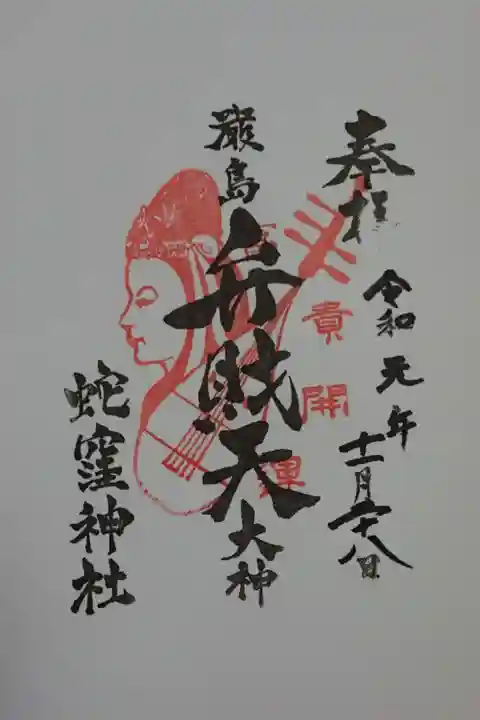 奉拝
令和元年
十一月二十八日
厳島
弁財天
大神
富貴開運
蛇窪神社